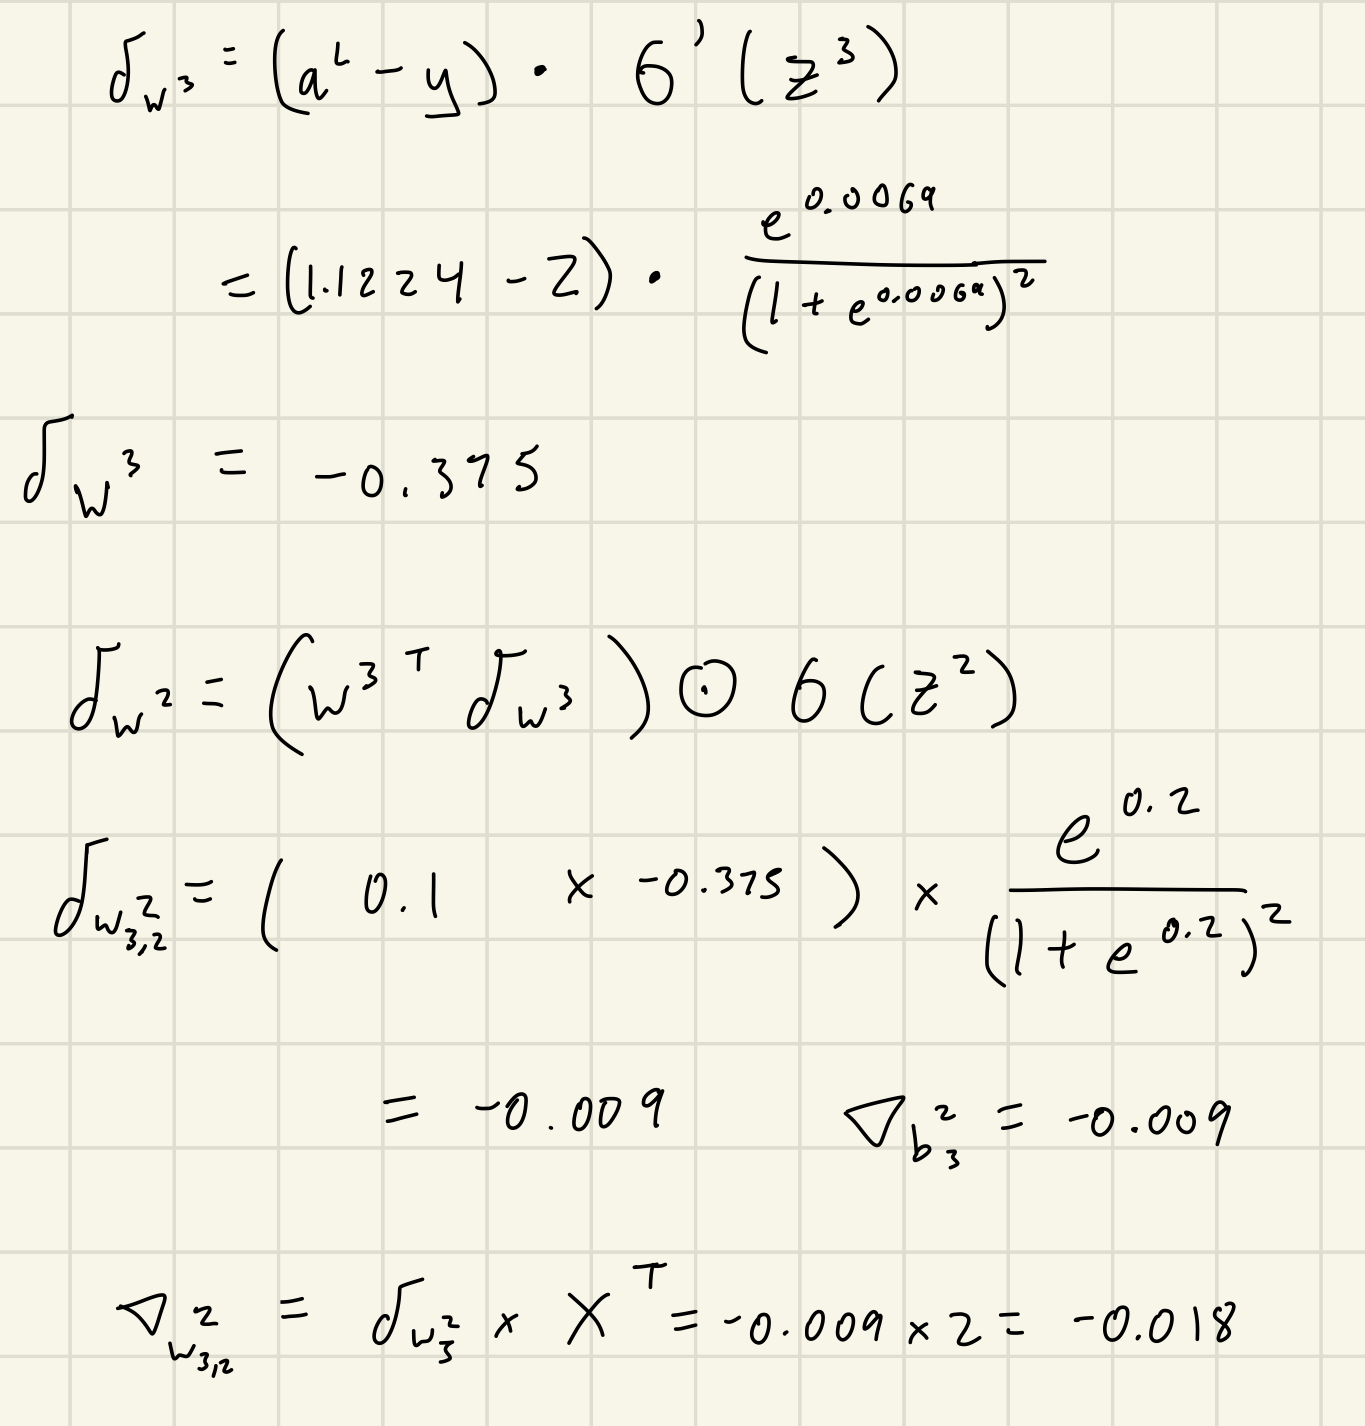 δ_w³ = (aᴸ - y) · σ'(z³)
= (1.1224 - 2) · e^0.0069 / (1 + e^0.0069)²
δ_w³ = -0.375
δ_w² = (w³ᵀ δ_w³) ⊙ σ(z²)
δ_w²_3,2 = ( 0.1 × -0.375 ) × e^0.2 / (1 + e^0.2)²
= -0.009 ∇_b²_3 = -0.009
∇_w²_3,2 = δ_w²_3 × Xᵀ = -0.009 × 2 = -0.018